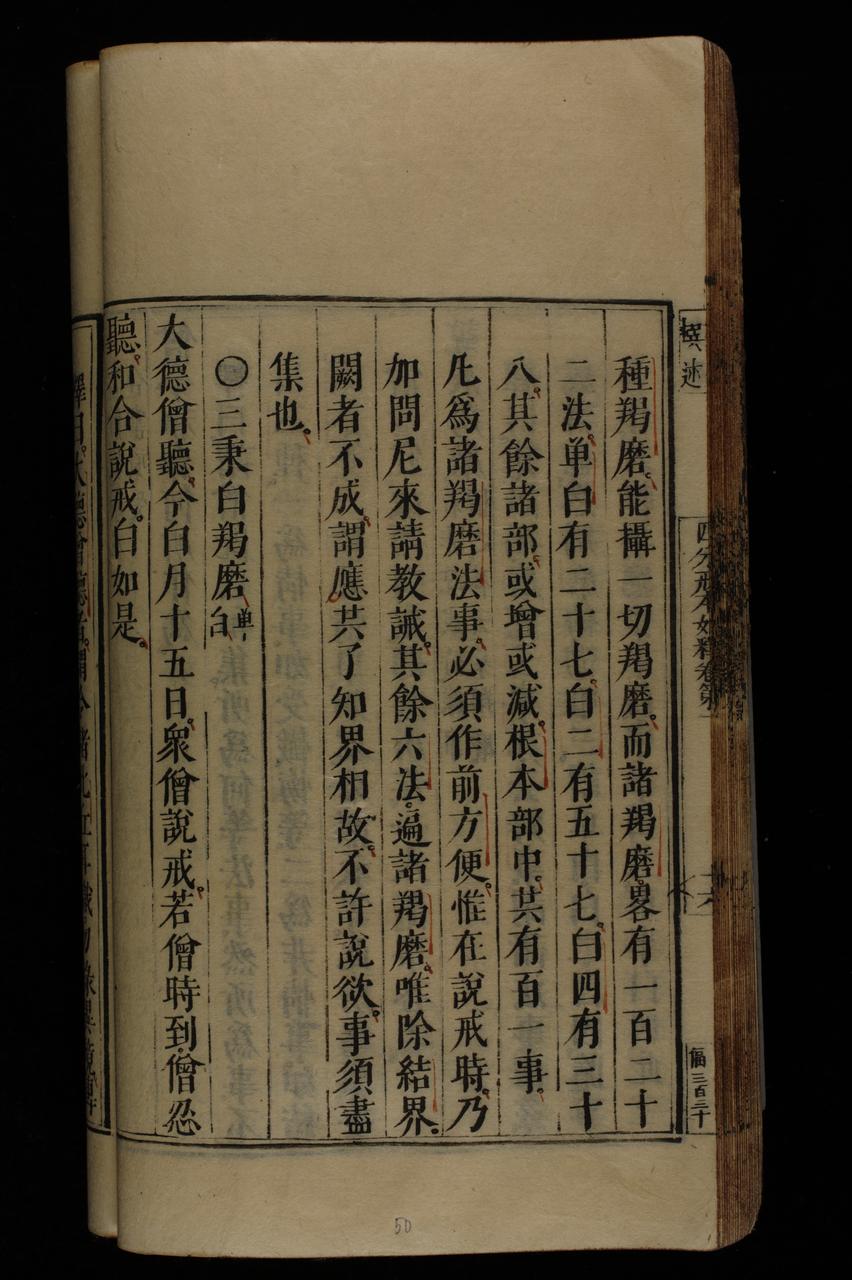 撰述
四分戒本如釋卷第一
十六
種羯磨。能攝一切羯磨。而諸羯磨。畧有一百二十
二法。单白有二十七。白二有五十七。白四有三十
八。其餘諸部。或增或減。根本部中。共有百一事。
凡爲諸羯磨法事。必須作前方便。惟在說戒時。乃
加問尼來請教誡。其餘六法。遍諸羯磨。唯除結界。
闕者不成。謂應共了知界相故。不許說欲。事須盡
集也。
○三秉白羯磨 单白
大德僧聽。今白月十五日。衆僧說戒。若僧時到僧忍
聽。和合說戒。白如是。
50